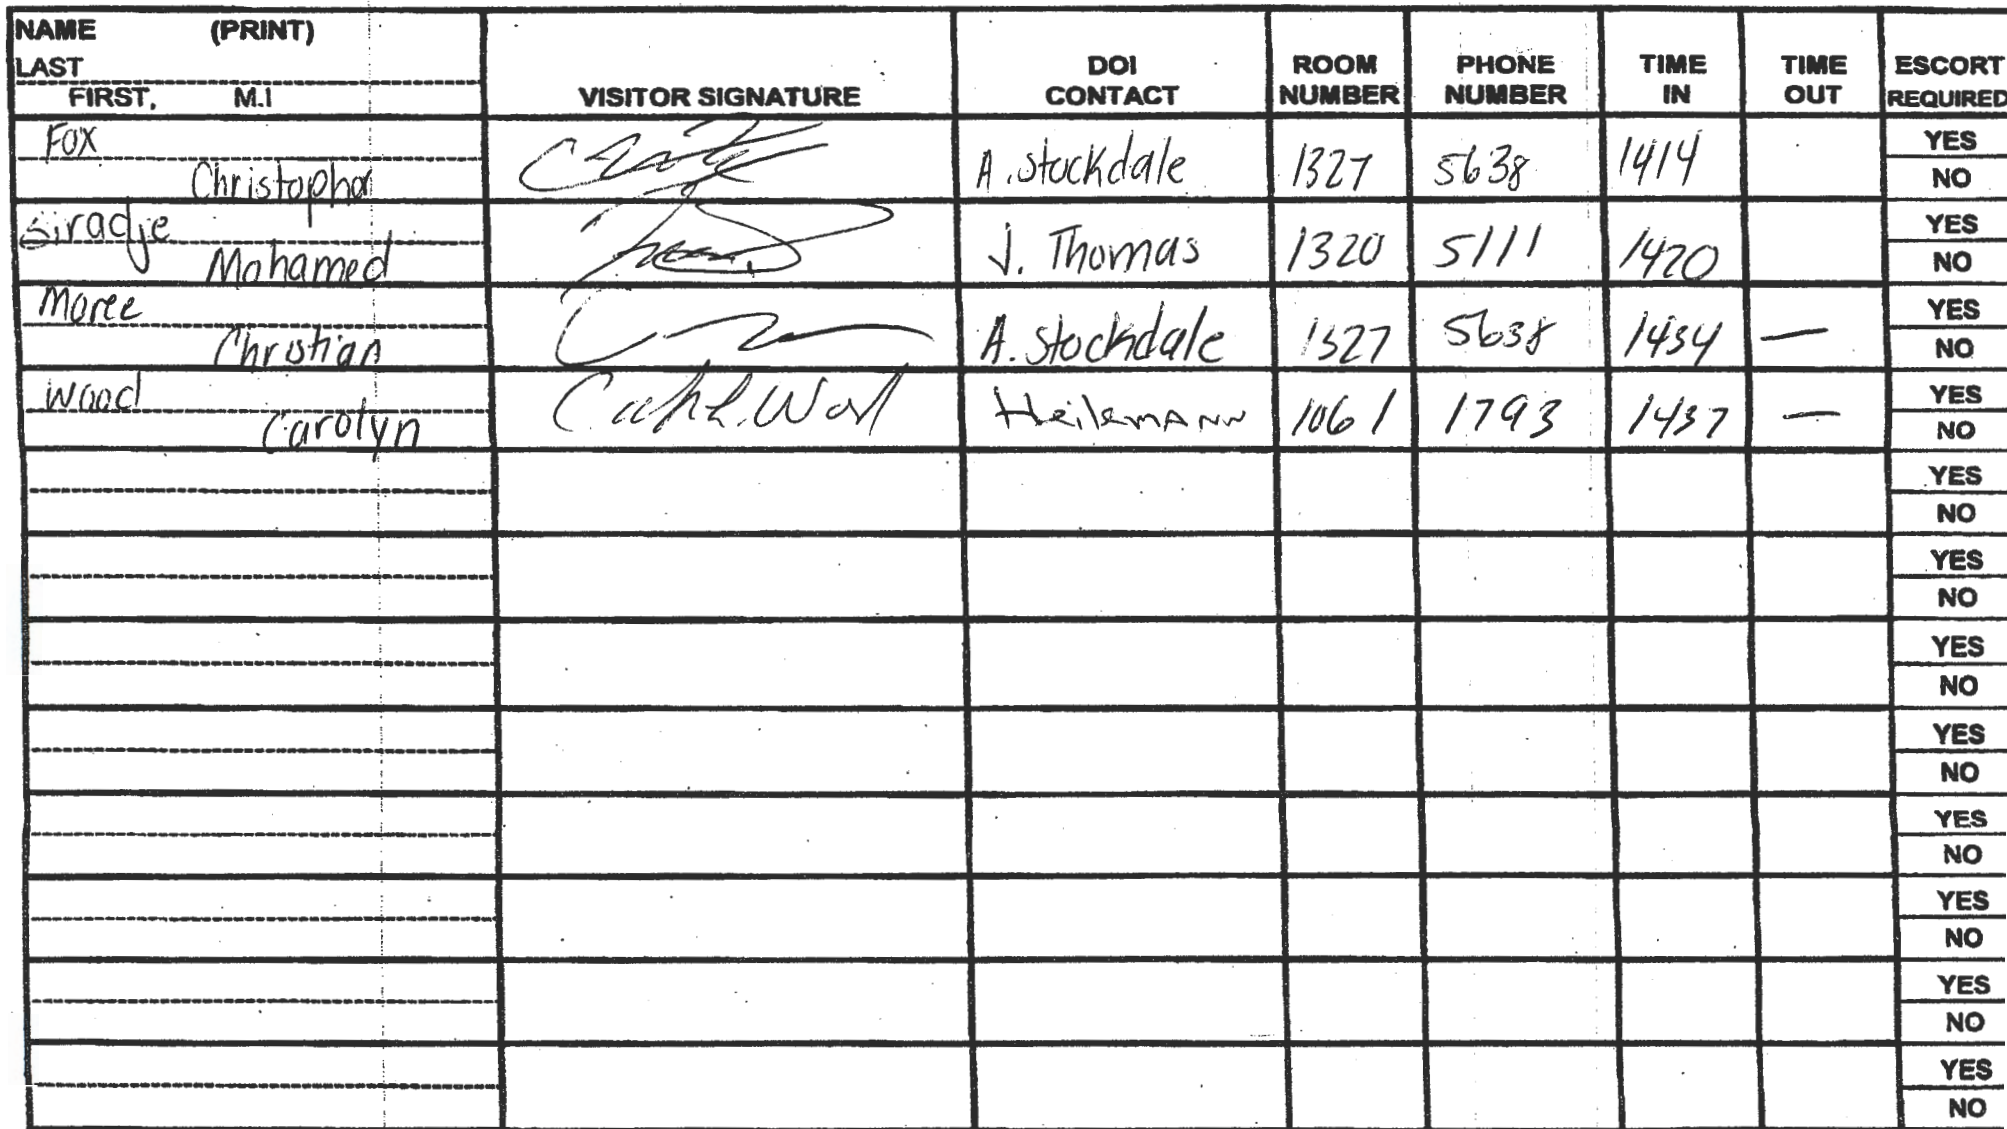 NAME (PRINT)
LAST
FIRST, M.I
VISITOR SIGNATURE
DOI CONTACT
ROOM NUMBER
PHONE NUMBER
TIME IN
TIME OUT
ESCORT REQUIRED
Fox
Christopher
A. Stockdale 1327 5638 1414 YES
NO
Siradje
Mohamed
J. Thomas 1320 5111 1420 YES
NO
Moree
Christian
A. Stockdale 1327 5638 1434 — YES
NO
Wood
Carolyn
Heilemann 1061 1793 1437 — YES
NO
YES
NO
YES
NO
YES
NO
YES
NO
YES
NO
YES
NO
YES
NO
YES
NO